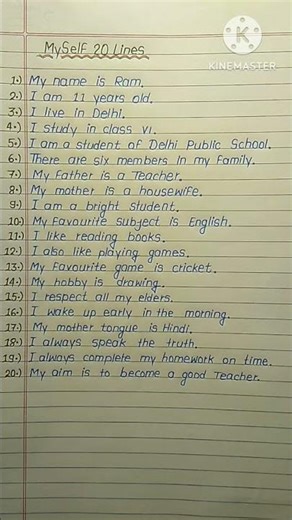 KINEMASTER
MySelf 20 Lines
1.) My name is Ram.
2.) I am 11 years old.
3.) I live in Delhi.
4.) I study in class VI.
5.) I am a student of Delhi Public School.
6.) There are six members in my family.
7.) My Father is a Teacher.
8.) My mother is a housewife.
9.) I am a bright student.
10.) My Favourite subject is English.
11.) I like reading books.
12.) I also like playing games.
13.) My Favourite game is cricket.
14.) My hobby is drawing.
15.) I respect all my elders.
16.) I wake up early in the morning.
17.) My mother tongue is Hindi.
18.) I always speak the truth.
19.) I always complete my homework on time.
20.) My aim is to become a good Teacher.